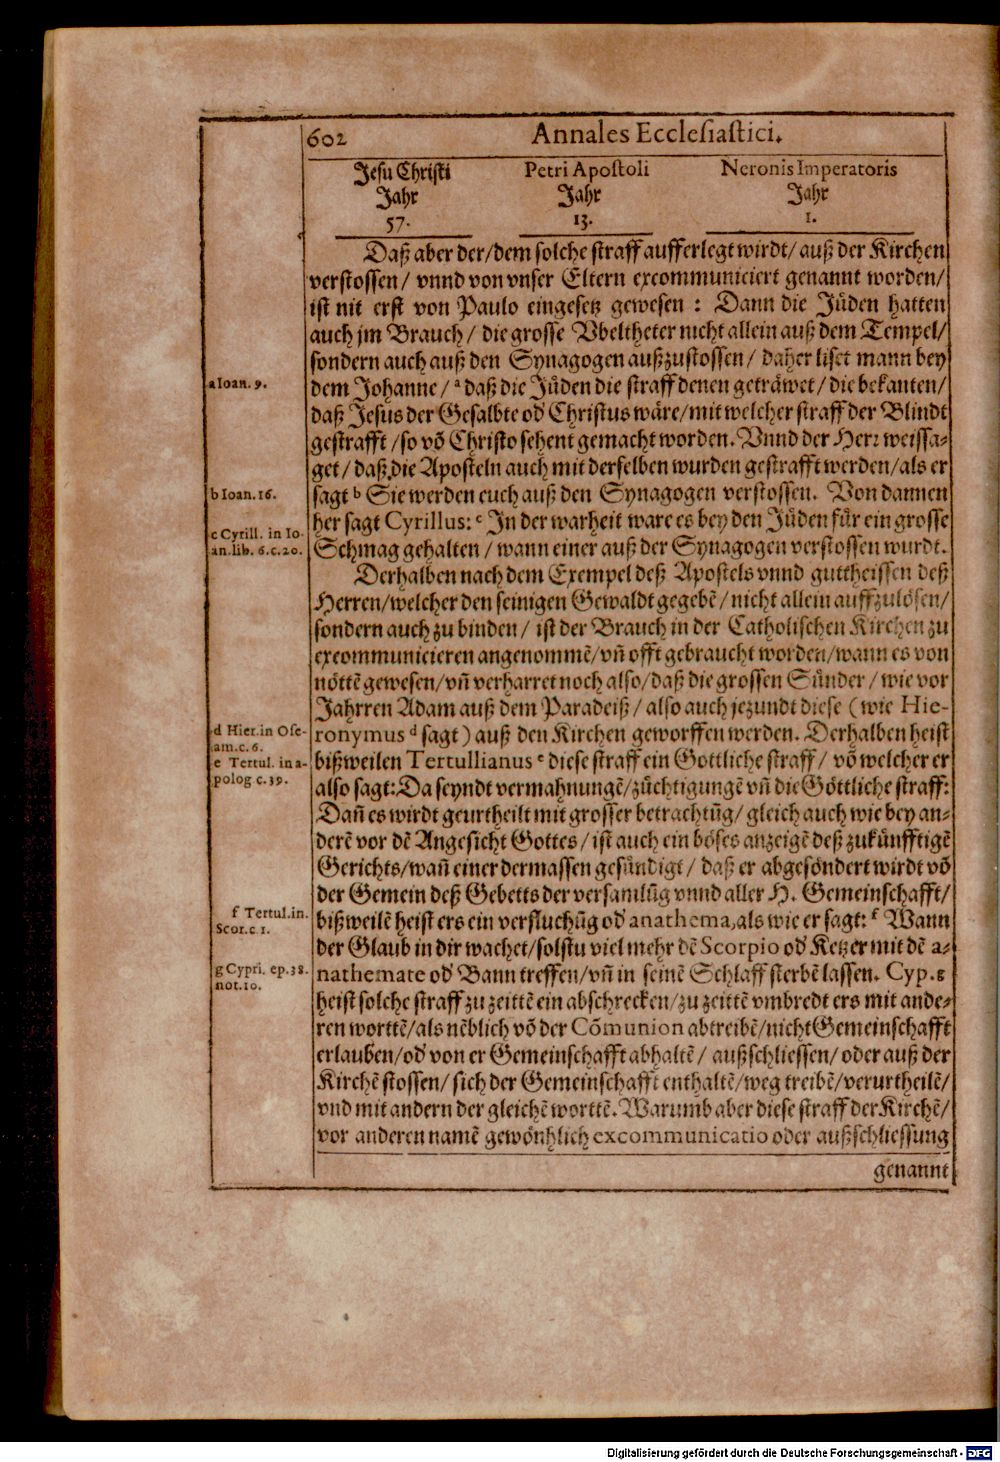 602 Annales Ecclesiastici.
Jesu Christi Petri Apostoli Neronis Imperatoris
Jahr Jahr Jahr
57. 13. 1.
Daß aber der/dem solche straff aufferlegt wirdt/ auß der Kirchen
verstossen/ vnnd von vnser Eltern excommuniciert genannt worden/
ist nit erst von Paulo eingesetz gewesen : Dann die Jüden hatten
auch jm Brauch/ die grosse Vbeltheter nicht allein auß dem Tempel/
sondern auch auß den Synagogen außzustossen/ daher liset mann bey
a Ioan. 9.
dem Johanne/ a daß die Jüden die straff denen geträwet/ die bekanten/
daß Jesus der Gesalbte od Christus wäre/ mit welcher straff der Blindt
gestrafft/ so võ Christo sehent gemacht worden. Vnnd der Herr weissa-
get/ daß die Aposteln auch mit derselben wurden gestrafft werden/als er
b Ioan. 16.
sagt b Sie werden euch auß den Synagogen verstossen. Von dannen
her sagt Cyrillus: c In der warheit ware es bey den Jüden für ein grosse
c Cyrill. in Io-
an. lib. 6. c. 20.
Schmag gehalten/ wann einer auß der Synagogen verstossen wurdt.
Derhalben nach dem Exempel deß Apostels vnnd guttheissen deß
Herren/welcher den seinigen Gewaldt gegebẽ/ nicht allein auffzulösen/
sondern auch zu binden/ ist der Brauch in der Catholischen Kirchen zu
excommunicieren angenommẽ/vñ offt gebraucht worden/wann es von
nöttẽ gewesen/vñ verharret noch also/daß die grossen Sünder/ wie vor
Jahrren Adam auß dem Paradeiß/ also auch jezundt diese (wie Hie-
d Hier. in Ose-
am. c. 6.
ronymus d sagt) auß den Kirchen geworffen werden. Derhalben heist
e Tertul. in a-
polog c. 39.
bißweilen Tertullianus e diese straff ein Gottliche straff/ võ welcher er
also sagt: Da seyndt vermahnungẽ/züchtigungẽ vñ die Göttliche straff:
Dañ es wirdt geurtheilt mit grosser betrachtũg/ gleich auch wie bey an-
derẽ vor dẽ Angesicht Gottes/ ist auch ein böses anzeigẽ deß zukünfftigẽ
Gerichts/wañ einer dermassen gesündigt/ daß er abgesöndert wirdt võ
der Gemein deß Gebetts der versamlũg vnnd aller H. Gemeinschafft/
f Tertul. in.
Scor. c 1.
bißweilẽ heist ers ein verfluchũg od anathema, als wie er sagt: f Wann
der Glaub in dir wachet/solstu viel mehr dẽ Scorpio od Ketzer mit dẽ a-
g Cypri. ep. 38.
not. 10.
nathemate od Bann treffen/vñ in seinẽ Schlaff sterbẽ lassen. Cyp. g
heist solche straff zu zeittẽ ein abschrecken/zu zeittẽ vmbredt ers mit ande-
ren worttẽ/als nẽblich võ der Cõmunion abtreibẽ/nicht Gemeinschafft
erlauben/od von er Gemeinschafft abhaltẽ/ außschliessen/oder auß der
Kirchẽ stossen/ sich der Gemeinschafft enthaltẽ/weg treibẽ/verurtheilẽ/
vnd mit andern der gleichẽ worttẽ. Warumb aber diese straff der Kirchẽ/
vor anderen namẽ gewönhlich excommunicatio oder außschliessung
genannt
Digitalisierung gefördert durch die Deutsche Forschungsgemeinschaft - DFG